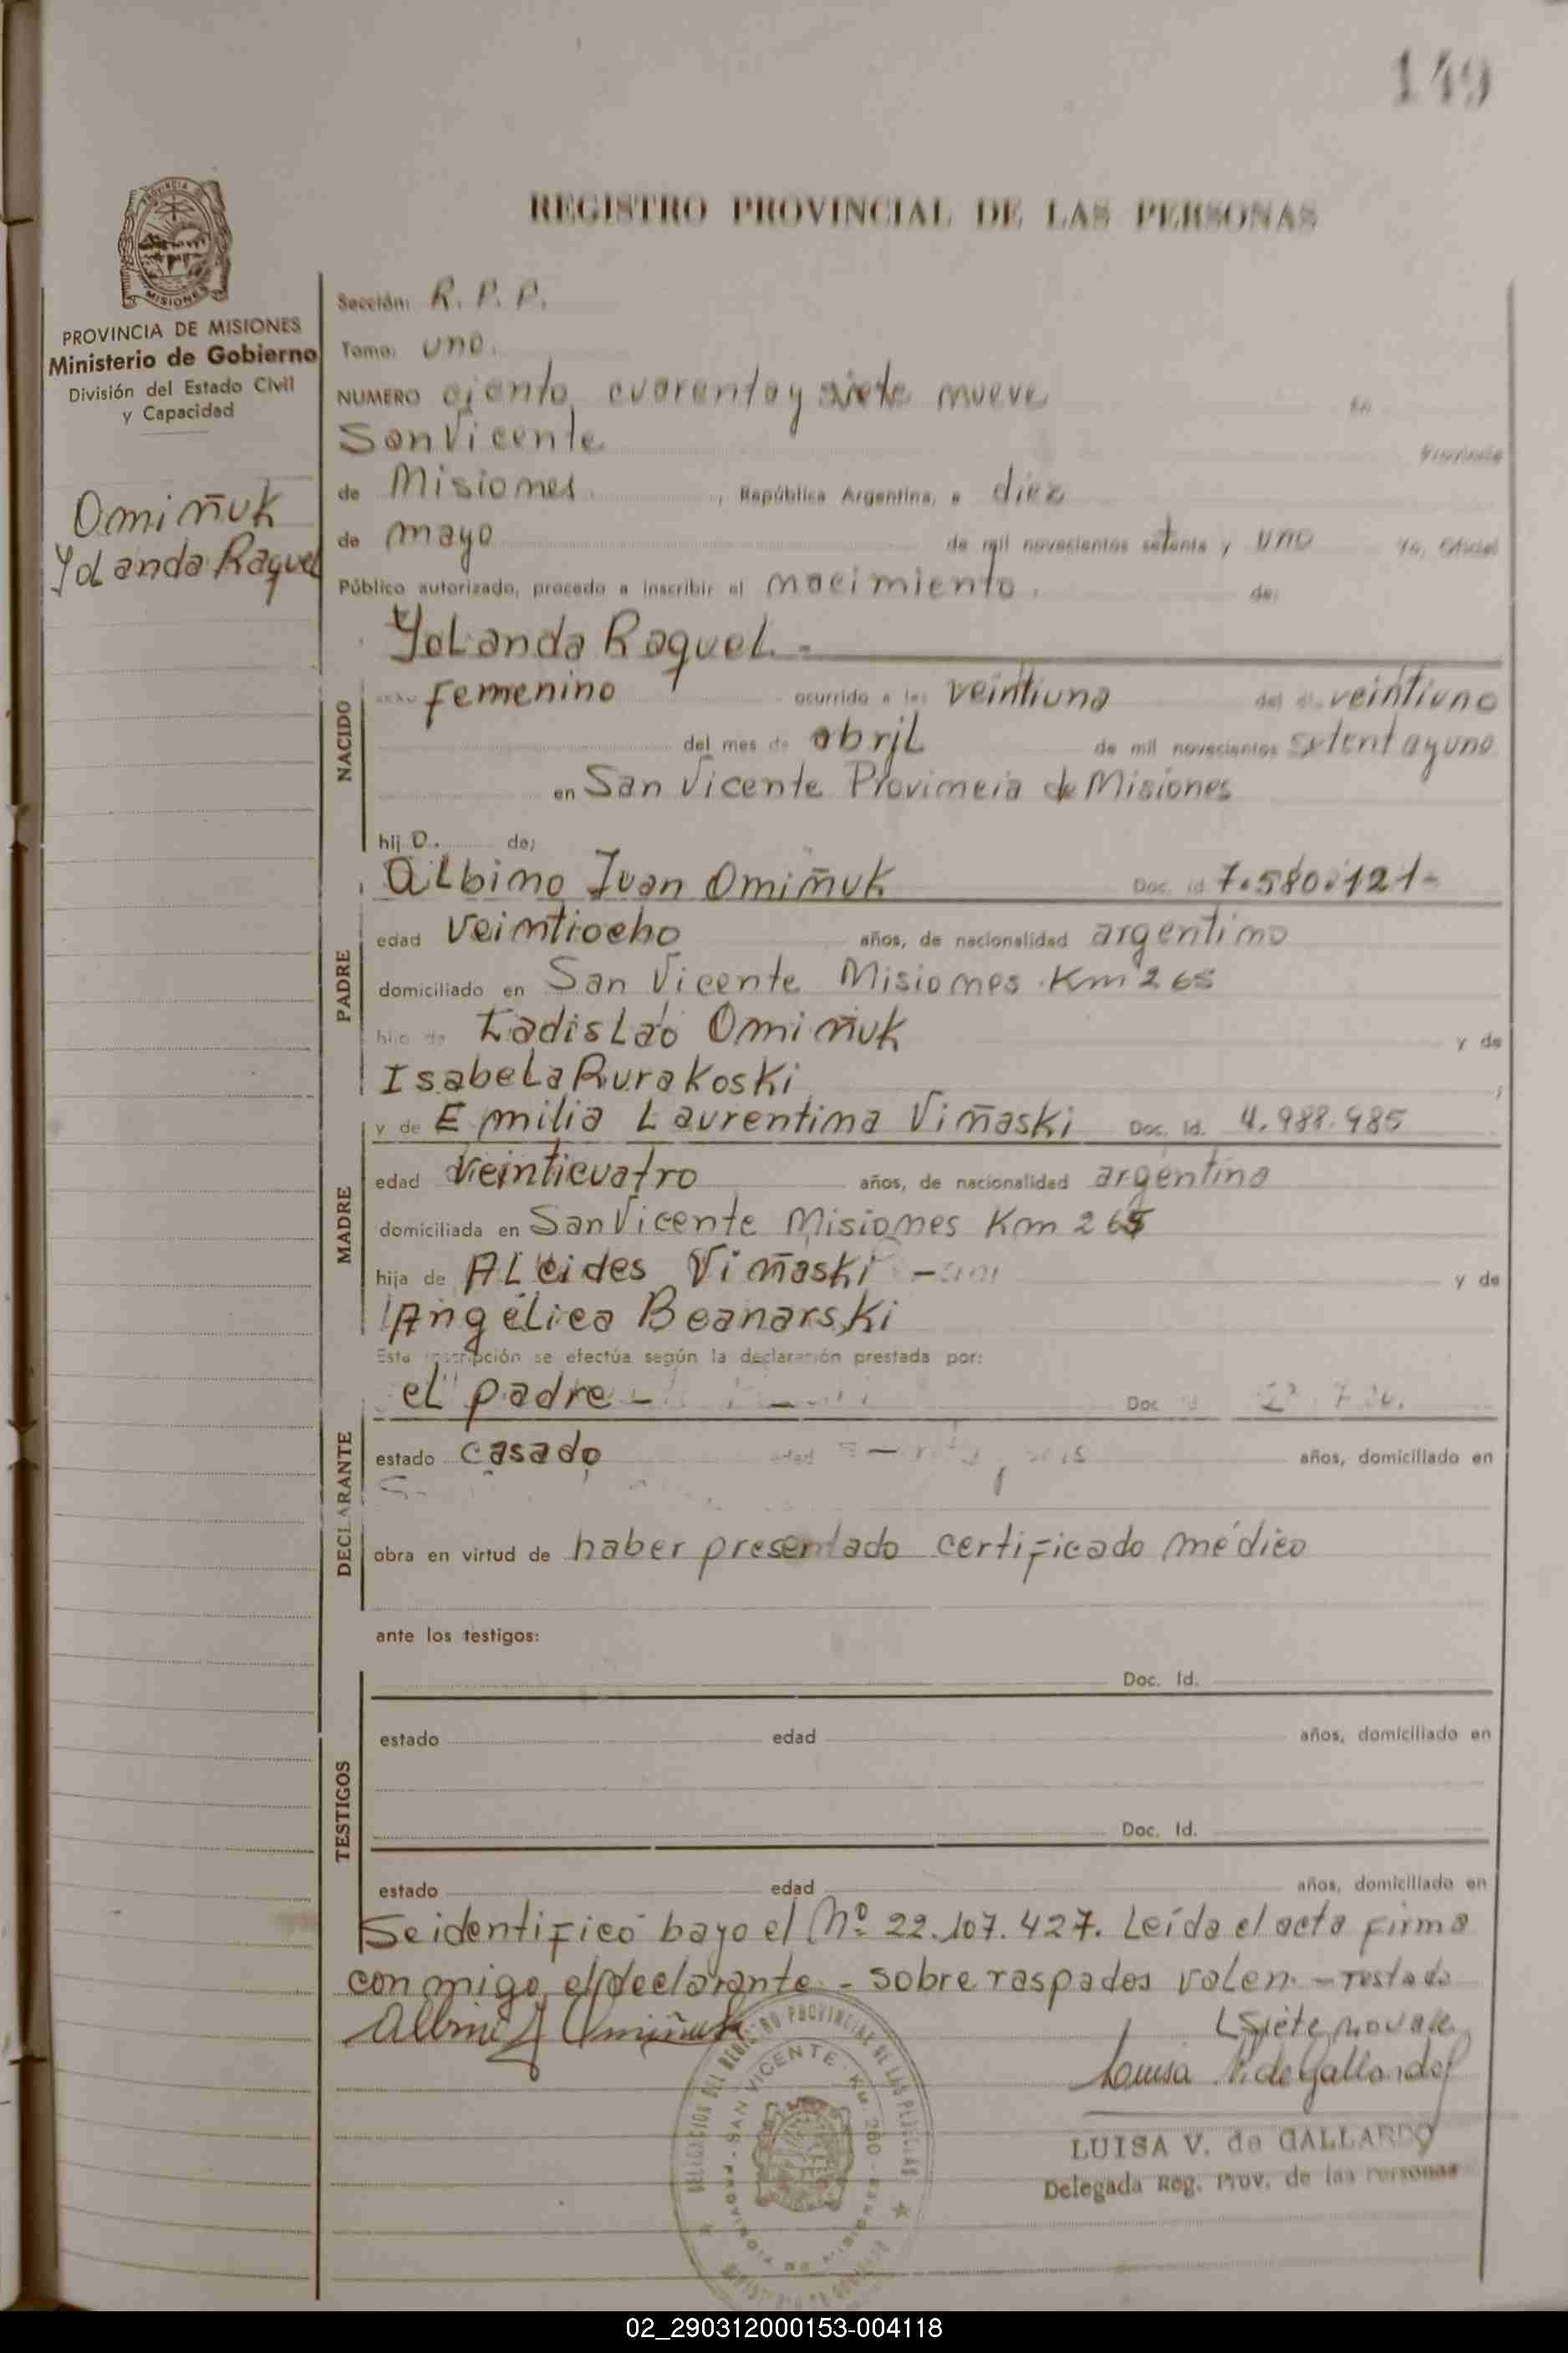 149
PROVINCIA DE
MISIONES
REGISTRO PROVINCIAL DE LAS PERSONAS
PROVINCIA DE MISIONES
Ministerio de Gobierno
División del Estado Civil
y Capacidad
Omiñuk
Yolanda Raquel
Sección: R. P. P.
Tomo: uno.
NUMERO ciento cuarenta y siete nueve En
San Vicente Provincia
de Misiones, República Argentina, a diez
de mayo de mil novecientos setenta y uno Yo, Oficial
Público autorizado, procedo a inscribir el nacimiento. de:
Yolanda Raquel. -
NACIDO
sexo femenino ocurrido a las veintiuna del día veintiuno
del mes de abril de mil novecientos setenta y uno
en San Vicente Provincia de Misiones
hij o. de;
Albino Juan Omiñuk Doc. Id 7.580.121-
PADRE
edad veintiocho años, de nacionalidad argentino
domiciliado en San Vicente Misiones Km 265
hijo de Ladislao Omiñuk y de
Isabela Rurakoski
y de Emilia Laurentina Viñaski Doc. Id. 4.988.985
MADRE
edad veinticuatro años, de nacionalidad argentina
domiciliada en San Vicente Misiones Km 265
hija de Alcides Viñaski - y de
Angélica Beanarski
Esta inscripción se efectúa según la declaración prestada por:
el padre - Doc
DECLARANTE
estado casado edad años, domiciliado en
obra en virtud de haber presentado certificado médico
ante los testigos:
Doc. Id.
TESTIGOS
estado edad años, domiciliado en
Doc. Id.
estado edad años, domiciliado en
Se identificó bajo el Nº 22.107.427. Leída el acta firma
conmigo el declarante - sobreraspados valen. - Testado
siete no vale
Albino J Omiñuk
Luisa V. de Gallardo
LUISA V. de GALLARDO
Delegada Reg. Prov. de las Personas
DELEGACION DEL REGISTRO PROVINCIAL DE LAS PERSONAS
SAN VICENTE - Km 260
PROVINCIA DE MISIONES
02_290312000153-004118